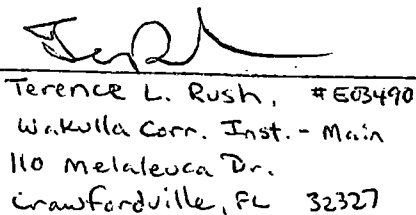 Terence L. Rush, #E03490
Wakulla Corr. Inst. - Main
110 Melaleuca Dr.
Crawfordville, FL 32327